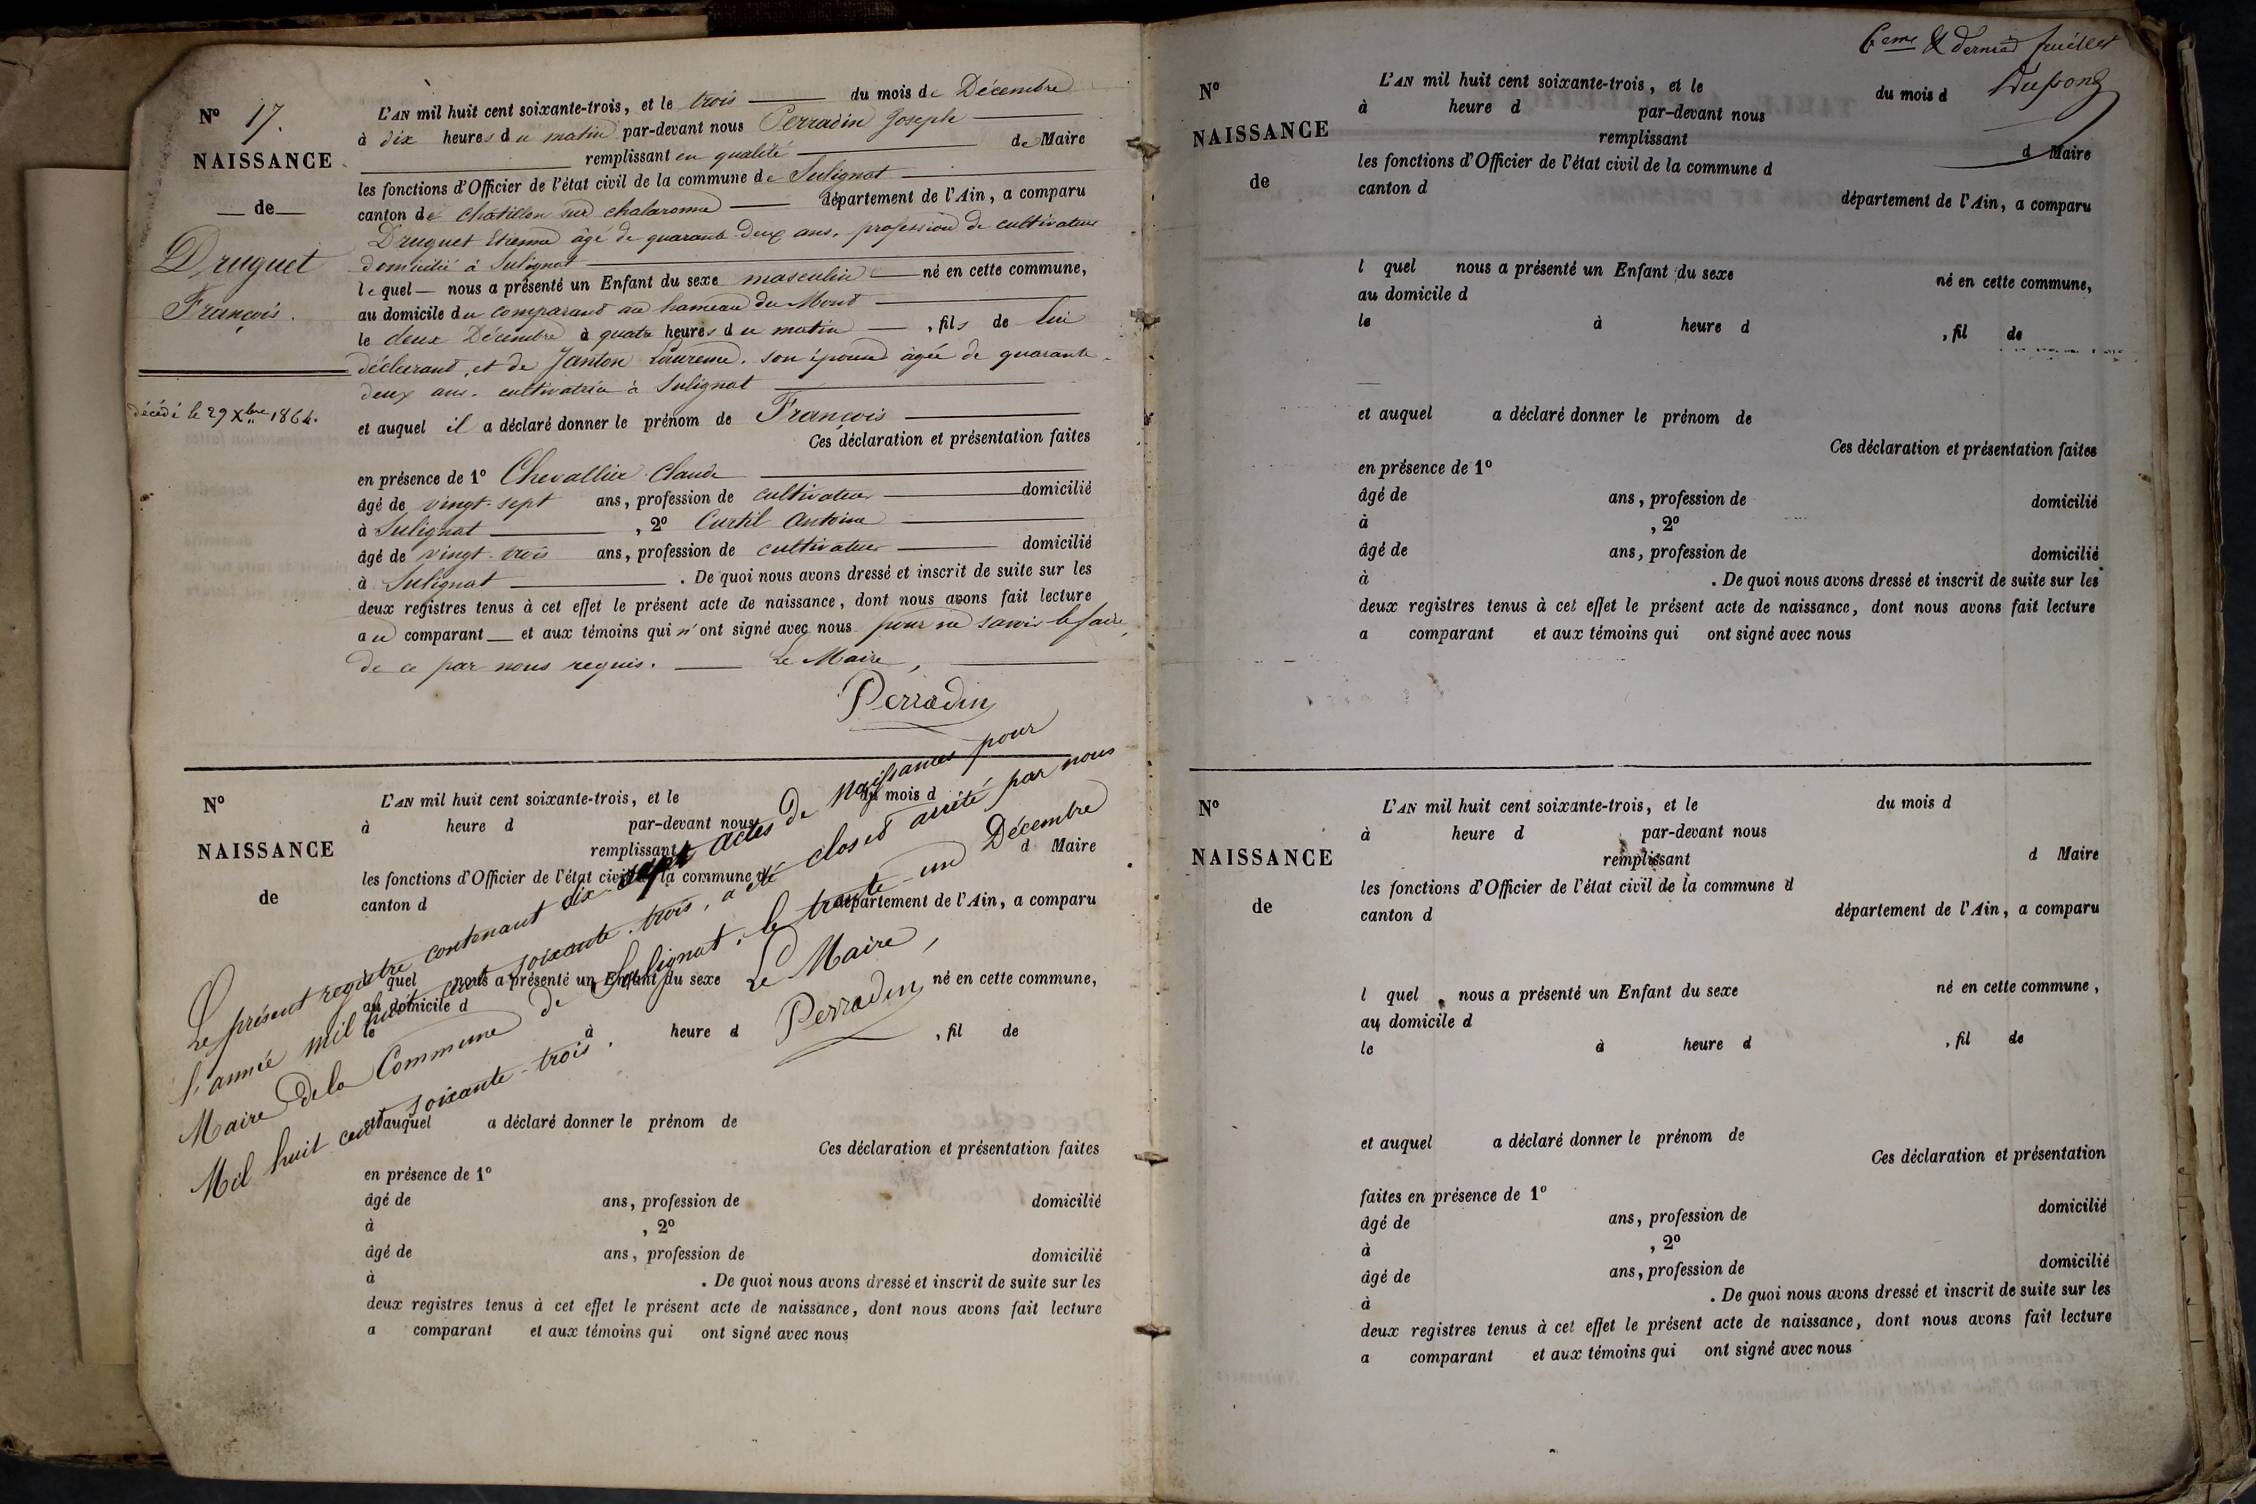 N° 17.
NAISSANCE
de
Druguet
François.
décédé le 29 Xbre 1864.
L'AN mil huit cent soixante-trois, et le trois du mois de Décembre
à dix heures du matin par-devant nous Perradin Joseph
remplissant en qualité de Maire
les fonctions d'Officier de l'état civil de la commune de Sulignat
canton de châtillon sur chalaronne département de l'Ain, a comparu
Druguet Etienne âgé de quarante deux ans, profession de cultivateur
domicilié à Sulignat
lequel nous a présenté un Enfant du sexe masculin né en cette commune,
au domicile du comparant au hameau du Mont
le deux Décembre à quatre heures du matin, fils de lui
déclarant, et de Janton Laurence, son épouse âgée de quarante
deux ans, cultivatrice à Sulignat
et auquel il a déclaré donner le prénom de François
Ces déclaration et présentation faites
en présence de 1° Chevallier Claude
âgé de vingt-sept ans, profession de cultivateur domicilié
à Sulignat, 2° Curtil Antoine
âgé de vingt-trois ans, profession de cultivateur domicilié
à Sulignat. De quoi nous avons dressé et inscrit de suite sur les
deux registres tenus à cet effet le présent acte de naissance, dont nous avons fait lecture
au comparant et aux témoins qui n'ont signé avec nous pour ne savoir le faire,
de ce par nous requis. Le Maire,
Perradin
N°
NAISSANCE
de
L'AN mil huit cent soixante-trois, et le du mois d
à heure d par-devant nous
remplissant d Maire
les fonctions d'Officier de l'état civil de la commune d
canton d département de l'Ain, a comparu
l quel nous a présenté un Enfant du sexe né en cette commune,
au domicile d
le à heure d , fil de
et auquel a déclaré donner le prénom de
Ces déclaration et présentation faites
en présence de 1°
âgé de ans, profession de domicilié
à , 2°
âgé de ans, profession de domicilié
à . De quoi nous avons dressé et inscrit de suite sur les
deux registres tenus à cet effet le présent acte de naissance, dont nous avons fait lecture
a comparant et aux témoins qui ont signé avec nous
Le présent registre contenant dix-sept actes de naissances pour
l'année mil huit cent soixante-trois, a été clos et arrêté par nous
Maire de la Commune de Sulignat, le trente-un Décembre
Mil huit cent soixante-trois.
Le Maire,
Perradin
6eme & dernier feuillet
Dupong
N°
NAISSANCE
de
L'AN mil huit cent soixante-trois, et le du mois d
à heure d par-devant nous
remplissant d Maire
les fonctions d'Officier de l'état civil de la commune d
canton d département de l'Ain, a comparu
l quel nous a présenté un Enfant du sexe né en cette commune,
au domicile d
le à heure d , fil de
et auquel a déclaré donner le prénom de
Ces déclaration et présentation faites
en présence de 1°
âgé de ans, profession de domicilié
à , 2°
âgé de ans, profession de domicilié
à . De quoi nous avons dressé et inscrit de suite sur les
deux registres tenus à cet effet le présent acte de naissance, dont nous avons fait lecture
a comparant et aux témoins qui ont signé avec nous
N°
NAISSANCE
de
L'AN mil huit cent soixante-trois, et le du mois d
à heure d par-devant nous
remplissant d Maire
les fonctions d'Officier de l'état civil de la commune d
canton d département de l'Ain, a comparu
l quel nous a présenté un Enfant du sexe né en cette commune,
au domicile d
le à heure d , fil de
et auquel a déclaré donner le prénom de
Ces déclaration et présentation
faites en présence de 1°
âgé de ans, profession de domicilié
à , 2°
âgé de ans, profession de domicilié
à . De quoi nous avons dressé et inscrit de suite sur les
deux registres tenus à cet effet le présent acte de naissance, dont nous avons fait lecture
a comparant et aux témoins qui ont signé avec nous